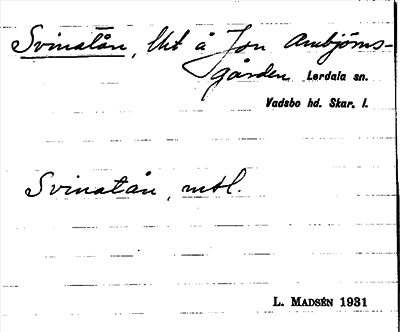 Svinatån, lht å Jon Ambjörns-
gården Lerdala sn.
Vadsbo hd. Skar. l.
Svinatån, mtl.
L. MADSÉN 1931